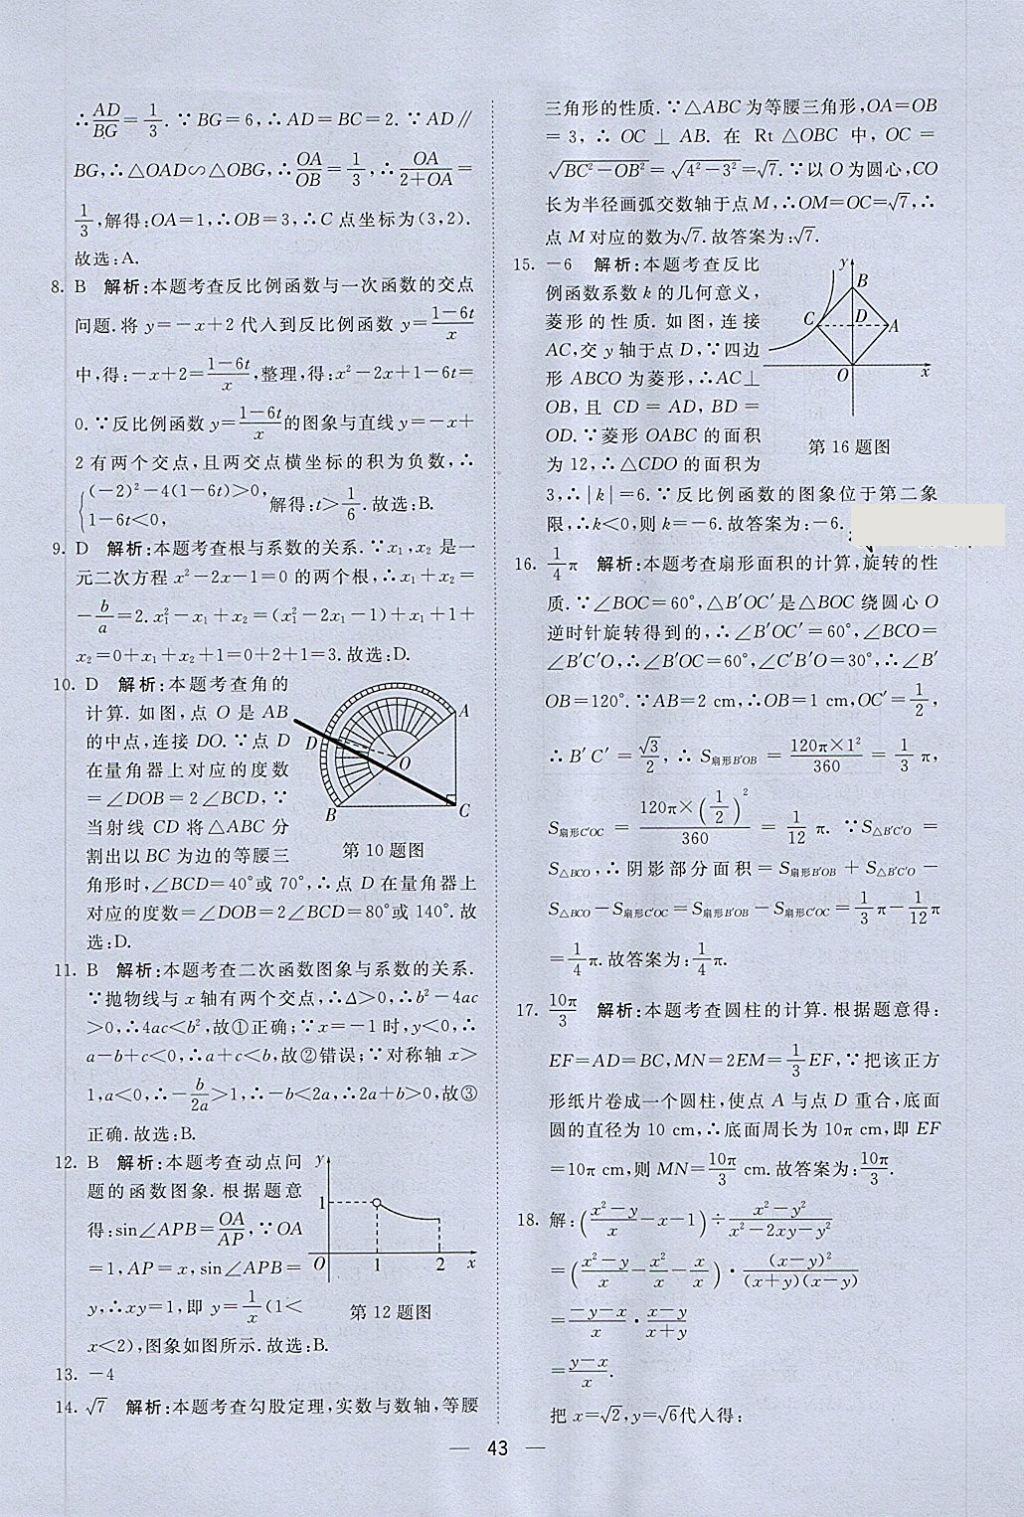 ∴AD/BG=1/3. ∵BG=6,∴AD=BC=2. ∵AD∥
BG,∴△OAD∽△OBG,∴OA/OB=1/3,∴OA/(2+OA)=
1/3,解得:OA=1,∴OB=3,∴C点坐标为(3,2).
故选:A.
8. B 解析:本题考查反比例函数与一次函数的交点
问题.将 y=-x+2代入到反比例函数 y=(1-6t)/x
中,得:-x+2=(1-6t)/x,整理,得:x²-2x+1-6t=
0.∵反比例函数 y=(1-6t)/x的图象与直线 y=-x+
2有两个交点,且两交点横坐标的积为负数,∴
{(-2)²-4(1-6t)>0,
1-6t<0, 解得:t>1/6.故选:B.
9. D 解析:本题考查根与系数的关系.∵x₁,x₂是一
元二次方程 x²-2x-1=0的两个根,∴x₁+x₂=
-b/a=2.x₁²-x₁+x₂=(x₁²-2x₁-1)+x₁+1+
x₂=0+x₁+x₂+1=0+2+1=3.故选:D.
10. D 解析:本题考查角的
计算.如图,点 O 是 AB
的中点,连接 DO.∵点 D
在量角器上对应的度数
=∠DOB=2∠BCD,∵
当射线 CD 将△ABC 分
割出以 BC 为边的等腰三
角形时,∠BCD=40°或 70°,∴点 D 在量角器上
对应的度数=∠DOB=2∠BCD=80°或 140°.故
选:D.
A
D
O
B
C
第10题图
11. B 解析:本题考查二次函数图象与系数的关系.
∵抛物线与 x 轴有两个交点,∴Δ>0,∴b²-4ac
>0,∴4ac<b²,故①正确;∵x=-1时,y<0,∴
a-b+c<0,∴a+c<b,故②错误;∵对称轴 x>
1,a<0,∴-b/2a>1,∴-b<2a,∴2a+b>0,故③
正确.故选:B.
12. B 解析:本题考查动点问
题的函数图象.根据题意
得:sin∠APB=OA/AP,∵OA
=1,AP=x,sin∠APB=
y,∴xy=1,即 y=1/x(1<
x<2),图象如图所示.故选:B.
y
1
O 1 2 x
第12题图
13. -4
14. √7 解析:本题考查勾股定理,实数与数轴,等腰
三角形的性质.∵△ABC为等腰三角形,OA=OB
=3,∴OC⊥AB.在 Rt△OBC 中,OC=
√(BC²-OB²)=√(4²-3²)=√7.∵以 O 为圆心,CO
长为半径画弧交数轴于点 M,∴OM=OC=√7,∴
点 M 对应的数为√7.故答案为:√7.
15. -6 解析:本题考查反比
例函数系数 k 的几何意义,
菱形的性质.如图,连接
AC,交 y 轴于点 D,∵四边
形 ABCO 为菱形,∴AC⊥
OB,且 CD=AD,BD=
OD.∵菱形 OABC 的面积
为 12,∴△CDO 的面积为
3,∴|k|=6.∵反比例函数的图象位于第二象
限,∴k<0,则 k=-6.故答案为:-6.
y
B
C D A
O x
第16题图
16. 1/4π 解析:本题考查扇形面积的计算,旋转的性
质.∵∠BOC=60°,△B′OC′是△BOC 绕圆心 O
逆时针旋转得到的,∴∠B′OC′=60°,∠BCO=
∠B′C′O,∴∠B′OC=60°,∠C′B′O=30°,∴∠B′
OB=120°.∵AB=2 cm,∴OB=1 cm,OC′=1/2,
∴B′C′=√3/2,∴S扇形B′OB=120π×1²/360=1/3π,
S扇形C′OC=120π×(1/2)²/360=1/12π.∵S△B′C′O=
S△BCO,∴阴影部分面积=S扇形B′OB+S△B′C′O-
S△BCO-S扇形C′OC=S扇形B′OB-S扇形C′OC=1/3π-1/12π
=1/4π.故答案为:1/4π.
17. 10π/3 解析:本题考查圆柱的计算.根据题意得:
EF=AD=BC,MN=2EM=1/3EF,∵把该正方
形纸片卷成一个圆柱,使点 A 与点 D 重合,底面
圆的直径为 10 cm,∴底面周长为 10π cm,即 EF
=10π cm,则 MN=10π/3 cm.故答案为:10π/3.
18. 解:((x²-y)/x-x-1)÷(x²-y²)/(x²-2xy-y²)
=((x²-y)/x-x²/x-x/x)·(x-y)²/((x+y)(x-y))
=(-y-x)/x·(x-y)/(x+y)
=(y-x)/x.
把 x=√2,y=√6代人得:
— 43 —